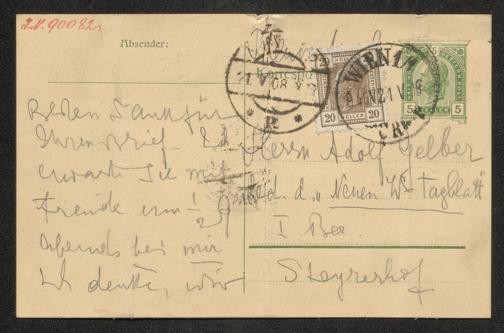 I.N. 90082
Absender:
Besten Dank für
Ihren Brief. Ich
erwarte Sie mit
Freude um
abends bei mir
Ich denke, wir
Herrn Adolf Gelber
d. „Neuen W. Tagblatt“
I. Bez.
Steyrerhof
WIEN
1 V 08
R
20 HELLER 20
5 5